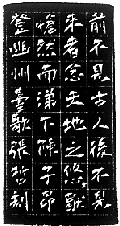 前不見古人後不見
来者念天地之悠獨
愴然而涕下陳子昂
登幽州臺歌張哲制